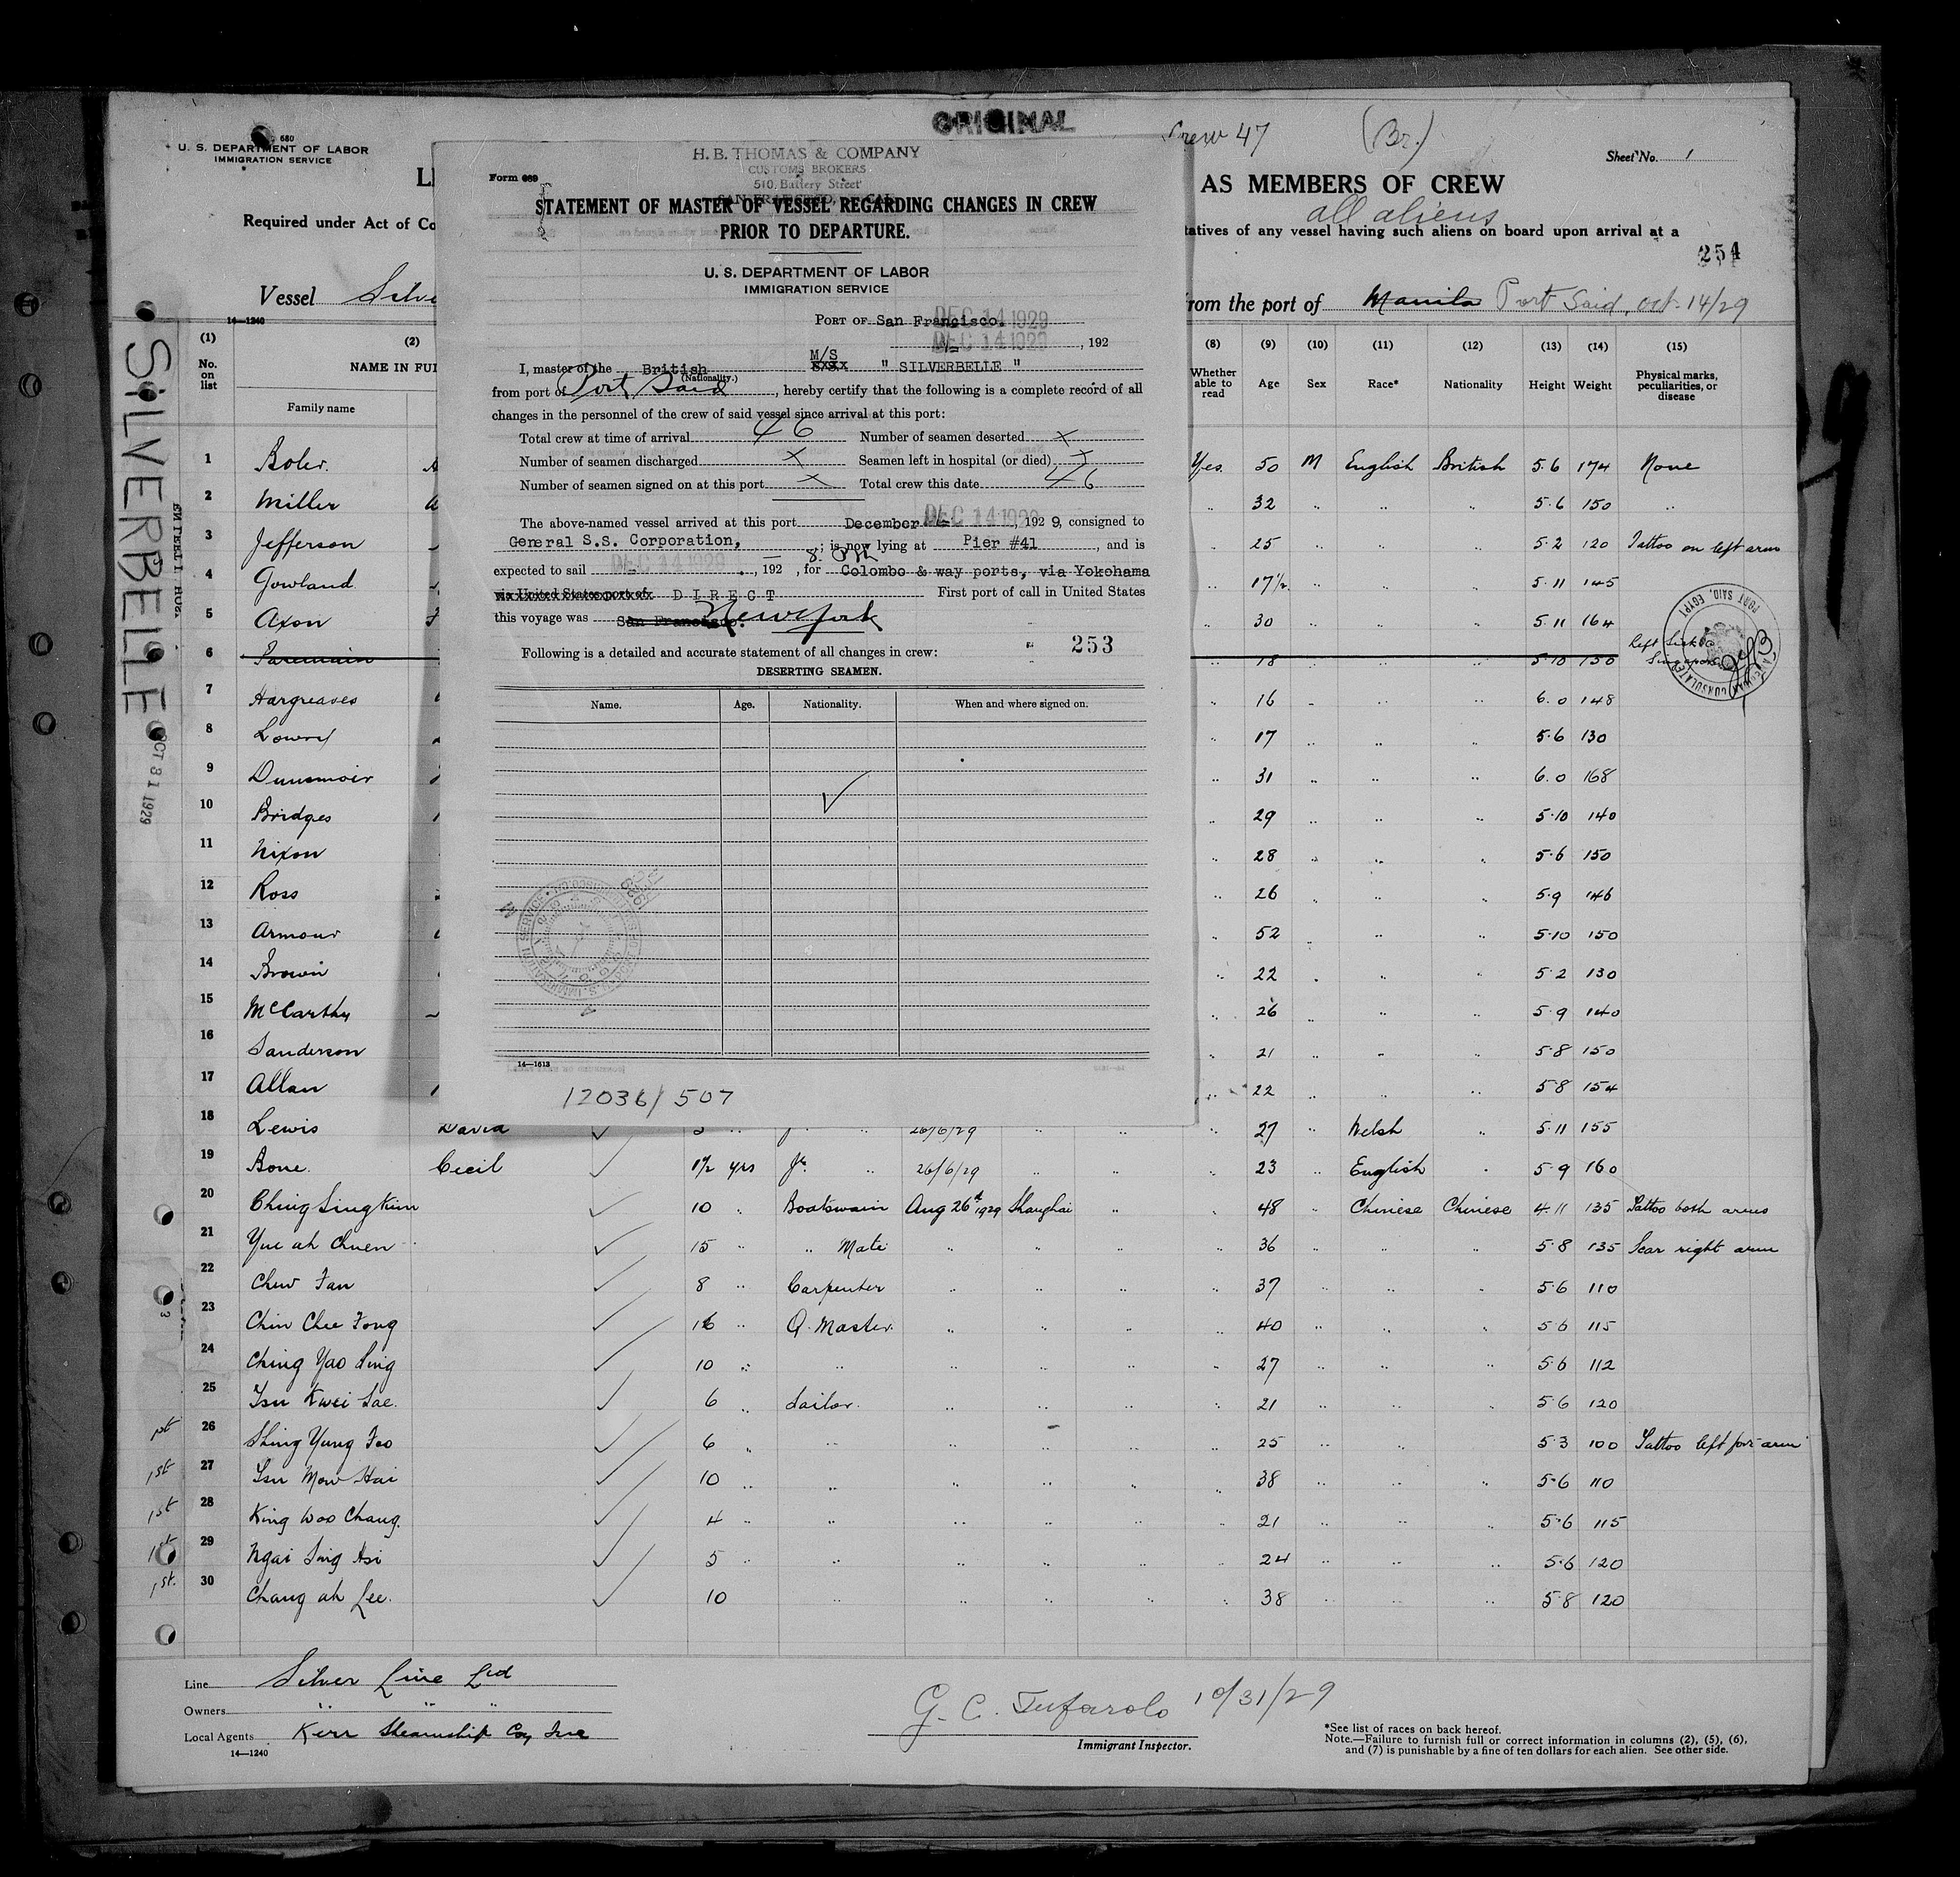 ORIGINAL
680
U. S. DEPARTMENT OF LABOR
IMMIGRATION SERVICE
Crew 47 (Br.)
Sheet No. 1
AS MEMBERS OF CREW
all aliens
Required under Act of Co
tatives of any vessel having such aliens on board upon arrival at a
254
Vessel Silve
from the port of Manila Port Said, Oct. 14/29
14—1240
H. B. THOMAS & COMPANY
CUSTOMS BROKERS
510, Battery Street
SAN FRANCISCO, CAL.
Form 689
STATEMENT OF MASTER OF VESSEL REGARDING CHANGES IN CREW
PRIOR TO DEPARTURE.
U. S. DEPARTMENT OF LABOR
IMMIGRATION SERVICE
PORT OF San Francisco.
DEC 14 1929
DEC 14 1929, 192
I, master of the British M/S " SILVERBELLE "
(Nationality.)
from port of Port Said, hereby certify that the following is a complete record of all
changes in the personnel of the crew of said vessel since arrival at this port:
Total crew at time of arrival 46 Number of seamen deserted x
Number of seamen discharged x Seamen left in hospital (or died) x
Number of seamen signed on at this port x Total crew this date 46
The above-named vessel arrived at this port December DEC 14 1929, 1929, consigned to
General S.S. Corporation, ; is now lying at Pier #41, and is
expected to sail DEC 14 1929, 192 , for Colombo & way ports, via Yokohama
via United States port of DIRECT First port of call in United States
this voyage was San Francisco. New York
253
Following is a detailed and accurate statement of all changes in crew:
DESERTING SEAMEN.
Name. Age. Nationality. When and where signed on.
14—1613
12036/507
SILVERBELLE
OCT 31 1929
(1) (2) (8) (9) (10) (11) (12) (13) (14) (15)
No. on list NAME IN FUL Whether able to read Age Sex Race* Nationality Height Weight Physical marks, peculiarities, or disease
Family name
1 Boler. Yes. 50 M English British 5.6 174 None
2 Miller " 32 " " " 5.6 150 "
3 Jefferson " 25 " " " 5.2 120 Tattoo on left arm
4 Gowland " 17½ " " " 5.11 145
5 Axon " 30 " " " 5.11 164
6 " 18 5.10 150 left Sick @ Singapore
AMERICAN CONSULATE PORT SAID, EGYPT
7 Hargreaves " 16 " " " 6.0 148
8 Lowry " 17 " " " 5.6 130
9 Dunsmoir " 31 " " " 6.0 168
10 Bridges " 29 " " " 5.10 140
11 Nixon " 28 " " " 5.6 150
12 Ross " 26 " " " 5.9 146
13 Armour " 52 " " " 5.10 150
14 Brown " 22 " " " 5.2 130
15 McCarthy " 26 " " " 5.9 140
16 Sanderson " 21 " " " 5.8 150
17 Allan " 22 " " " 5.8 154
18 Lewis David 26/6/29 " " " 27 Welsh " 5.11 155
19 Bone. Cecil 1½ yrs Jr. " 26/6/29 " " " 23 " English " 5.9 160
20 Ching Sing Kum 10 " Boatswain Aug 26th 1929 Shanghai " " 48 " Chinese Chinese 4.11 135 Tattoo both arms
21 Yue ah Chuen 15 " " Mate " " " " 36 " " " 5.8 135 Scar right arm
22 Chew Fan 8 " Carpenter " " " " 37 " " " 5.6 110
23 Chin Chee Fong 16 " Q. Master. " " " " 40 " " " 5.6 115
24 Ching Yao Sing 10 " " " " " " 27 " " " 5.6 112
25 Tsu Kwei Sae. 6 " Sailor. " " " " 21 " " " 5.6 120
1st 26 Shing Yung Foo 6 " " " " " " 25 " " 5.3 100 Tattoo left fore arm
1st 27 Tsu Mow Hai 10 " " " " " " 38 " " " 5.6 110
1st 28 King Woo Chang. 4 " " " " " " 21 " " " 5.6 115
1st 29 Ngai Sing Hsi 5 " " " " " " 24 " " " 5.6 120
1st. 30 Chang ah Lee. 10 " " " " " 38 " " " 5.8 120
Line Silver Line Ltd
Owners " " "
Local Agents Kerr Steamship Coy Inc
14—1240
G. C. Tufarolo 10/31/29
Immigrant Inspector.
*See list of races on back hereof.
Note.—Failure to furnish full or correct information in columns (2), (5), (6),
and (7) is punishable by a fine of ten dollars for each alien. See other side.